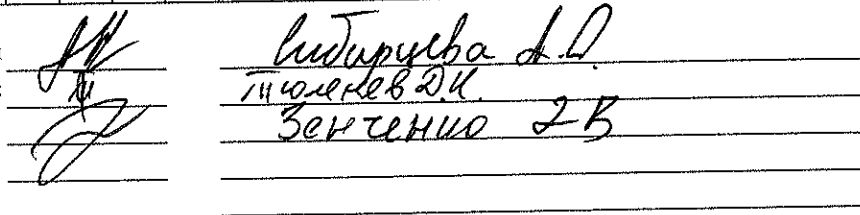 Сибирцева А.О.
Тюленев Д.К.
Зенченко Г В